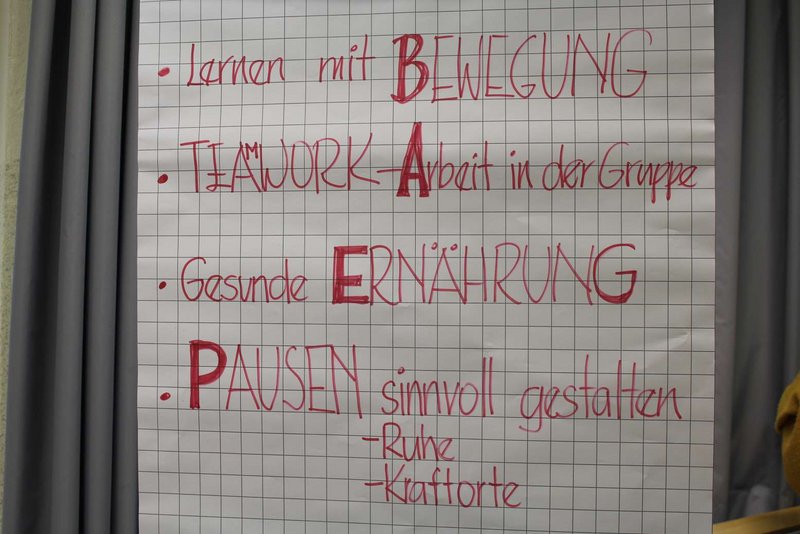 • Lernen mit BEWEGUNG
• TEAMWORK-Arbeit in der Gruppe
• Gesunde ERNÄHRUNG
• PAUSEN sinnvoll gestalten
-Ruhe
-Kraftorte